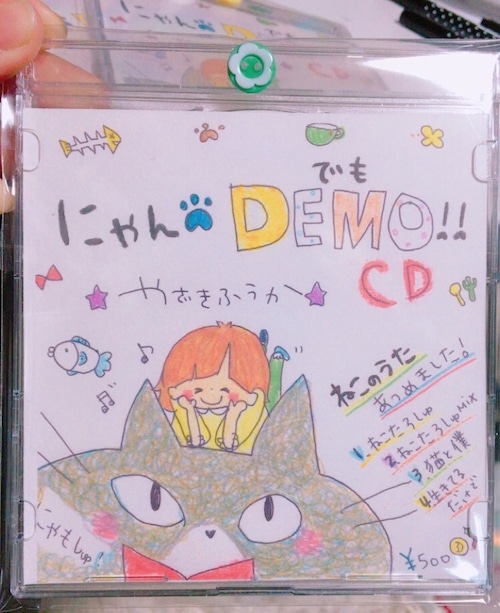 でも
にゃんDEMO!!
CD
やぶきふうか
ねこのうた
あつめました!
1 ねこたろしゅ
2 ねこたろしゅMIX
3 猫と僕
4 生きてる
だけだ
にゃもしゅ!
¥500